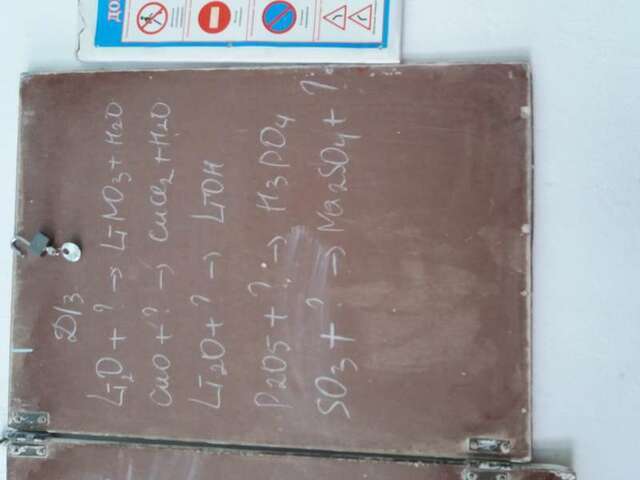 Д/з.
Li₂O + ? → LiNO₃ + H₂O
CuO + ? → CuCl₂ + H₂O
Li₂O + ? → LiOH
P₂O₅ + ? → H₃PO₄
SO₃ + ? → Na₂SO₄ + ?
ДО